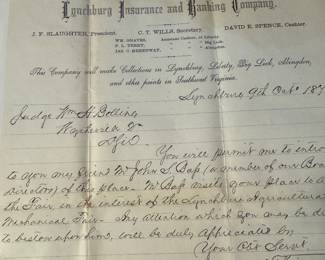 Lynchburg Insurance and Banking Company.
J. F. SLAUGHTER, President. C. T. WILLS, Secretary. DAVID E. SPENCE, Cashier.
WM. GRAVES, Assistant Cashier, at Liberty.
P. L. TERRY, " " Big Lick.
JAS. C. GREENWAY, " " Abingdon.
This Company will make Collections in Lynchburg, Liberty, Big Lick, Abingdon,
and other points in Southwest Virginia.
Lynchburg, 9th Oct. 187
Judge Wm H. Bolling
Wytheville Va
Dr Sir
You will permit me to
to you my friend Mr John S. (a member of our
Directors) of this place. Mr visits your place to
the Fair, in the interest of the Lynchburg Agricultural
Mechanical Fair. Any attention which you may be
to bestow upon him, will be duly appreciated by
Your Obt Servt.